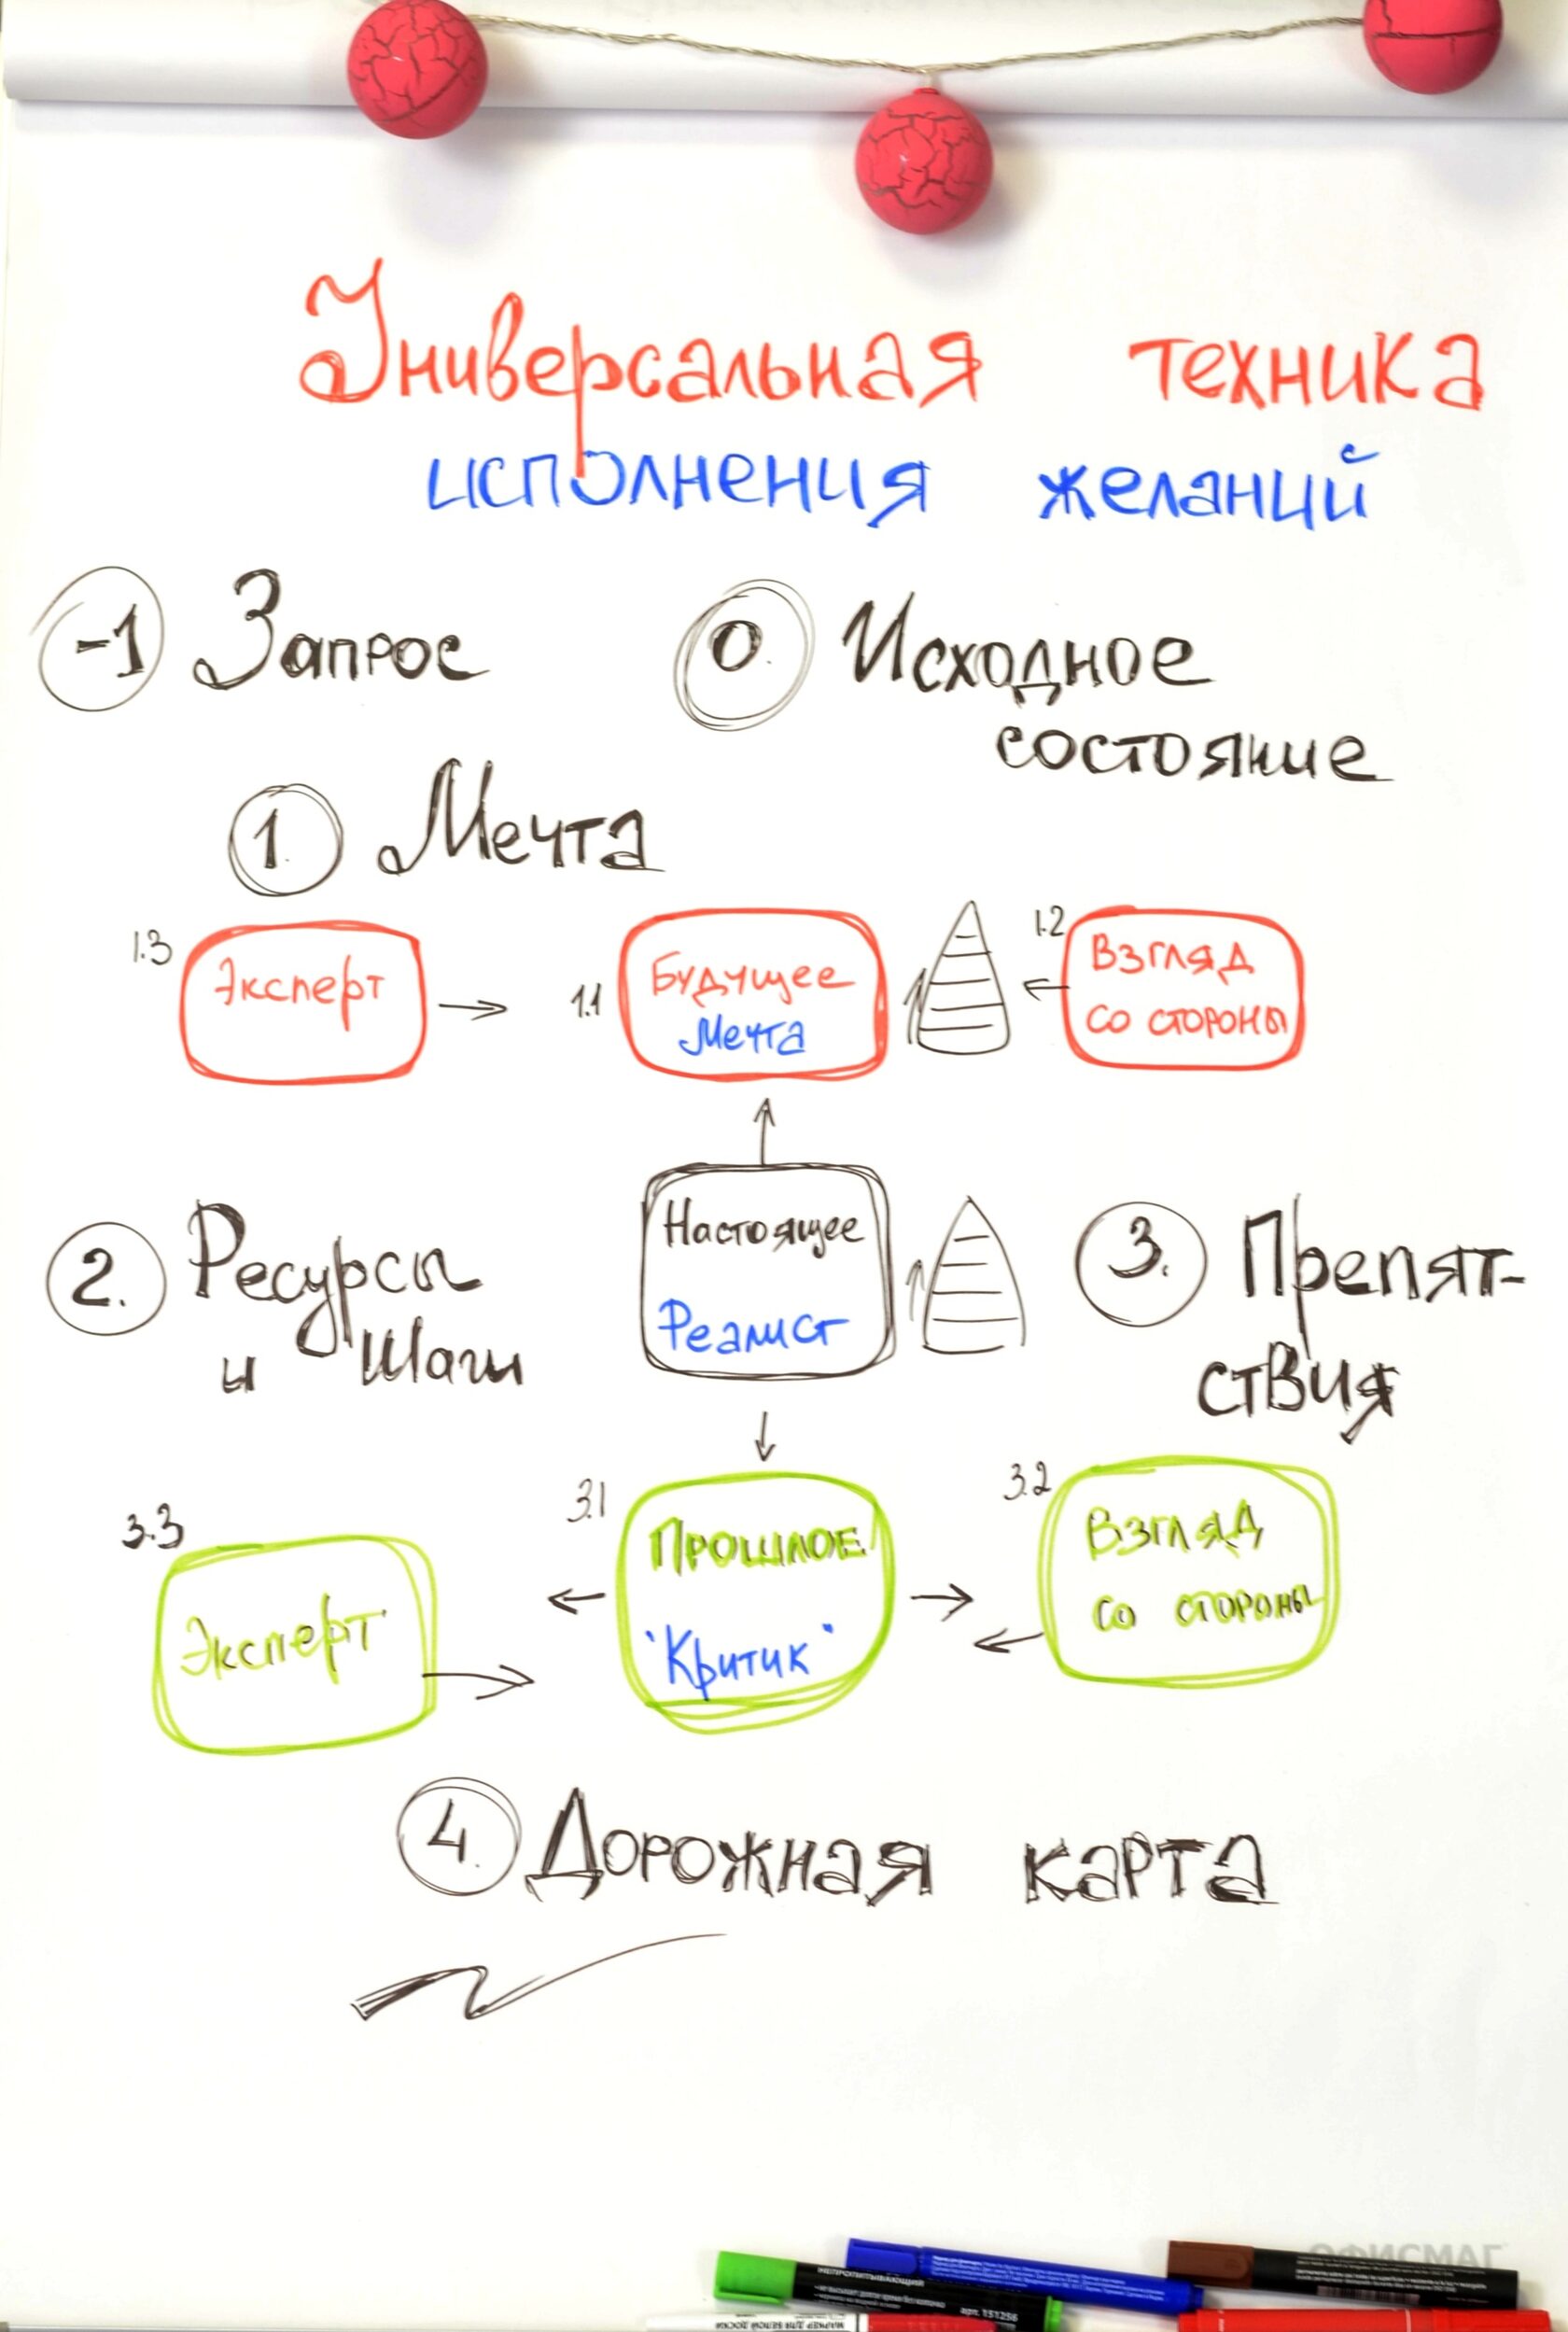 Универсальная техника
исполнения желаний
-1 Запрос
0. Исходное
состояние
1. Мечта
1.3 Эксперт
1.1 Будущее
Мечта
1.2 Взгляд
со стороны
2. Ресурсы
и шаги
Настоящее
Реалист
3. Препят-
ствия
3.3 Эксперт
3.1 Прошлое
"Критик"
3.2 Взгляд
со стороны
4. Дорожная карта
ОФИСМАГ
НЕПРОПИТЫВАЮЩИЙ
арт. 151256
МАРКЕР ДЛЯ БЕЛОЙ ДОСКИ